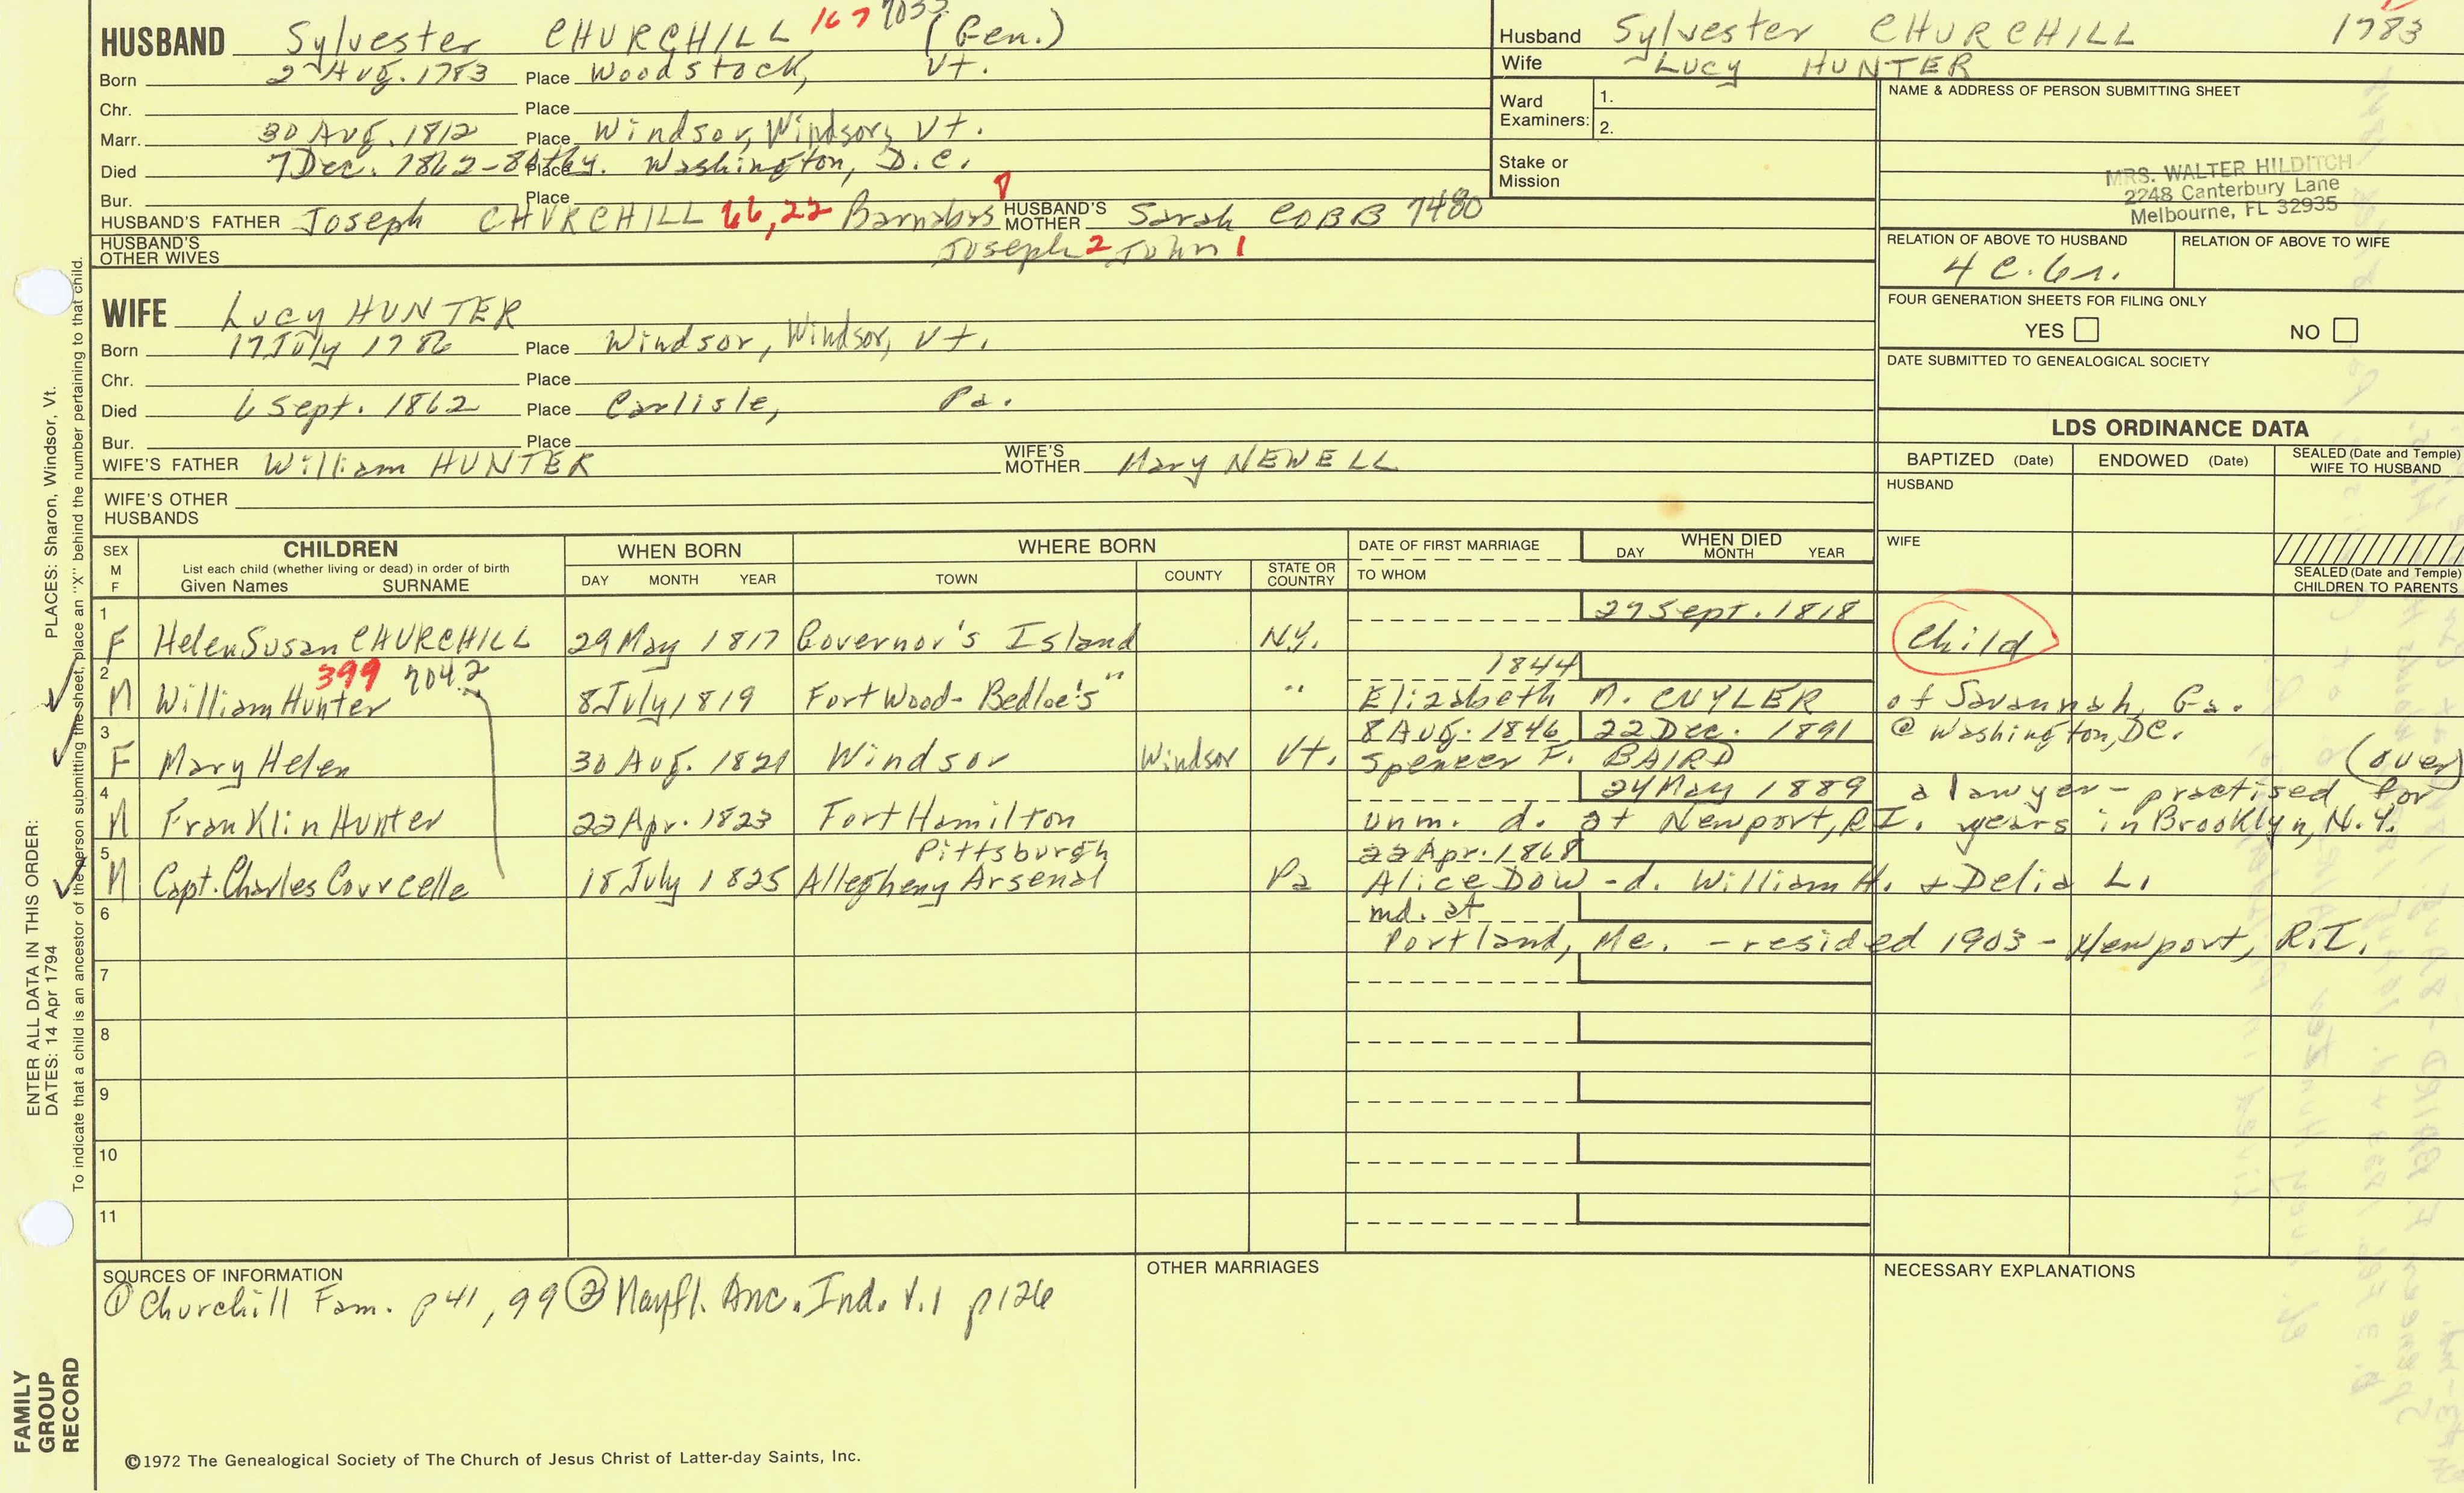 HUSBAND Sylvester CHURCHILL 167 (Gen.)
Born 2 Aug. 1783 Place Woodstock, Vt.
Chr. Place
Marr. 30 Aug. 1812 Place Windsor, Windsor, Vt.
Died 7 Dec. 1862 Place Washington, D.C.
Bur. Place
HUSBAND'S FATHER Joseph CHURCHILL 66, 22 Barnabas HUSBAND'S MOTHER Sarah COBB 7480
HUSBAND'S OTHER WIVES Joseph 2 John 1
WIFE Lucy HUNTER
Born 17 July 1786 Place Windsor, Windsor, Vt.
Chr. Place
Died 6 Sept. 1862 Place Carlisle, Pa.
Bur. Place
WIFE'S FATHER William HUNTER WIFE'S MOTHER Mary NEWELL
WIFE'S OTHER HUSBANDS
Husband Sylvester CHURCHILL 1783
Wife Lucy HUNTER
Ward Examiners: 1.
2.
Stake or Mission
NAME & ADDRESS OF PERSON SUBMITTING SHEET
MRS. WALTER HILDITCH
2248 Canterbury Lane
Melbourne, FL 32935
RELATION OF ABOVE TO HUSBAND RELATION OF ABOVE TO WIFE
4 C. 6r.
FOUR GENERATION SHEETS FOR FILING ONLY
YES NO
DATE SUBMITTED TO GENEALOGICAL SOCIETY
LDS ORDINANCE DATA
BAPTIZED (Date) ENDOWED (Date) SEALED (Date and Temple) WIFE TO HUSBAND
HUSBAND
WIFE
SEALED (Date and Temple) CHILDREN TO PARENTS
SEX M F
CHILDREN
List each child (whether living or dead) in order of birth
Given Names SURNAME
WHEN BORN
DAY MONTH YEAR
WHERE BORN
TOWN COUNTY STATE OR COUNTRY
DATE OF FIRST MARRIAGE
TO WHOM
WHEN DIED
DAY MONTH YEAR
1 27 Sept. 1818
F Helen Susan CHURCHILL 29 May 1817 Governor's Island N.Y. Child
2 399 7042 1844
M William Hunter 8 July 1819 Fort Wood - Bedloe's " " Elizabeth M. CUYLER of Savannah, Ga.
3 8 Aug. 1846 22 Dec. 1891 @ Washington, DC.
F Mary Helen 30 Aug. 1821 Windsor Windsor Vt. Spencer F. BAIRD (over)
4 24 May 1889 a lawyer - practised for
M Franklin Hunter 22 Apr. 1823 Fort Hamilton unm. d. at Newport, R.I. years in Brooklyn, N.Y.
5 Pittsburgh 22 Apr. 1868
M Capt. Charles Courcelle 18 July 1825 Allegheny Arsenal Pa Alice Dow - d. William H. + Delia L.
6 md. at
Portland, Me. - resided 1903 - Newport, R.I.
7
8
9
10
11
SOURCES OF INFORMATION
① Churchill Fam. p 41, 99 ② Mayfl. Anc. Ind. V.1 p126
OTHER MARRIAGES
NECESSARY EXPLANATIONS
©1972 The Genealogical Society of The Church of Jesus Christ of Latter-day Saints, Inc.
FAMILY GROUP RECORD
ENTER ALL DATA IN THIS ORDER:
DATES: 14 Apr 1794 PLACES: Sharon, Windsor, Vt.
To indicate that a child is an ancestor of the person submitting the sheet, place an "X" behind the number pertaining to that child.